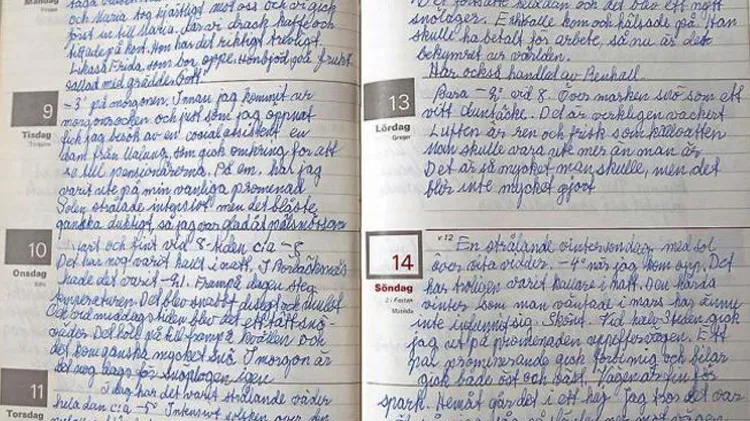 Måndag
och Maria tog hjärtligt mot oss och vi gick
först till Maria, där vi drack kaffe och
på kort. Hon har det riktigt trevligt.
Likaså Frida, som bor oppe. Hon bjöd på frukt
sallad med grädde. Gott!
9
Tisdag
-3° på morgonen. Innan jag kommit ur
morgonrocken och just som jag öppnat
fick jag besök av en social assistent en
dam från Malung, som gick omkring för att
se till pensionärerna. På em. har jag
varit ute på min vanliga promenad
Solen strålade intensivt men det blåste
ganska duktigt, så jag var glad åt
10
Onsdag
Klart och fint vid 8-tiden c:a -8
Det har nog varit kallt i natt. I
hade det varit -21. Frampå dagen steg
temperaturen. Det blev snabbt disigt och mulet
Och vid middagstiden blev det ett tätt snö-
väder. Det höll på till frampå kvällen och
det kom ganska mycket snö. I morgon är
det nog dags för snöplogen igen
11
Torsdag
I dag har det varit strålande väder
hela dan c:a -5° Intensivt solsken över den
Det fortsatte och det blev ett nytt
snölager. E kom och hälsade på. Han
skulle ha betalt för arbete, så nu är det
bekymret ur världen.
Har också handlat av
13
Lördag
Greger
Bara -2° vid 8. Över marken snö som ett
vitt duntäcke. Det är verkligen vackert
Luften är ren och frisk som källvatten
Man skulle vara ute mer än man är
Det är så mycket man skulle, men det
blir inte mycket gjort
14
Söndag
2 i Fastan
Matilda
v 12
En strålande vintersöndag med sol
över vita vidder. -4° när jag kom opp. Det
har troligen varit kallare i natt. Den hårda
vinter som man väntade i mars har ännu
inte infunnit sig. Skönt. Vid halv 3 tiden gick
jag ut på promenaden oppefter vägen. Ett
par promenerande gick förbi mig och bilar
gick både öst och väst. Vägen är fin för
spark. Hemåt går det i ett hej. Jag tror det var